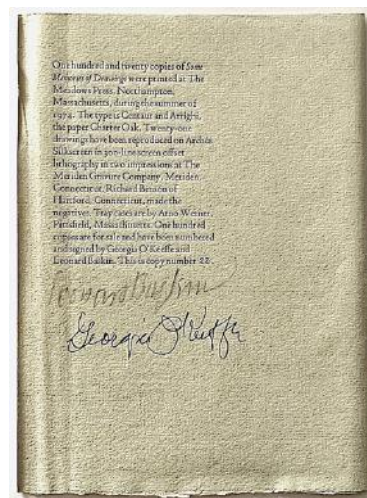 One hundred and twenty copies of Some
Memories of Drawings were printed at The
Meadows Press, Northampton,
Massachusetts, during the summer of
1974. The type is Centaur and Arrighi,
the paper Charter Oak. Twenty-one
drawings have been reproduced on Arches
Silkscreen in 300-line screen offset
lithography in two impressions at The
Meriden Gravure Company, Meriden,
Connecticut. Richard Benson of
Hartford, Connecticut, made the
negatives. Tray cases are by Arno Werner,
Pittsfield, Massachusetts. One hundred
copies are for sale and have been numbered
and signed by Georgia O'Keeffe and
Leonard Baskin. This is copy number 22.
Leonard Baskin
Georgia O'Keeffe